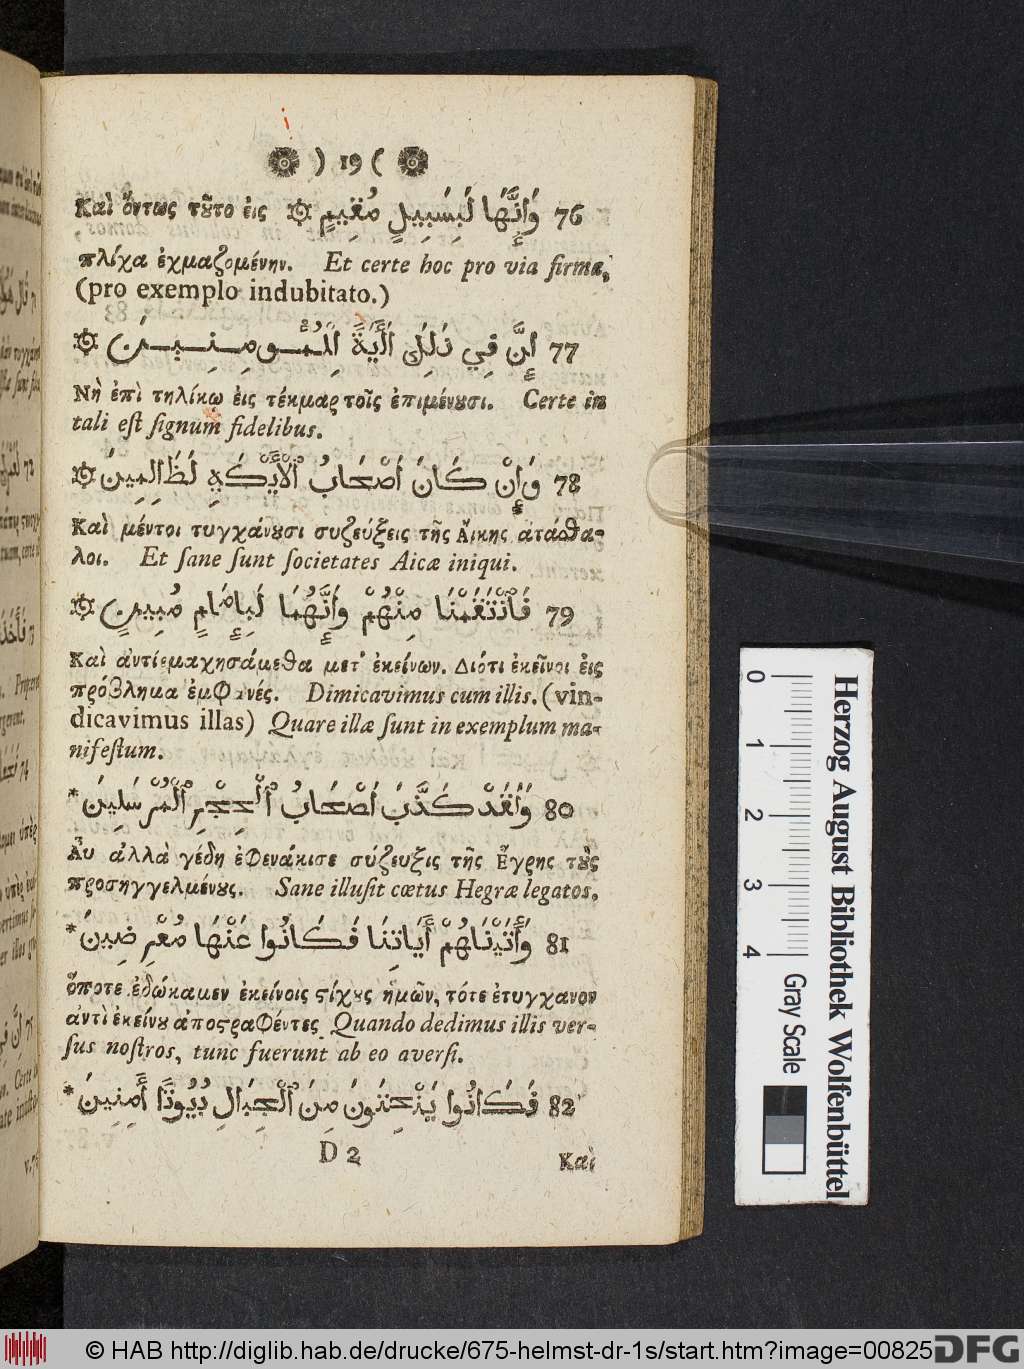 ) 19 (
76 وَإِنَّهَا لَبِسَبِيلٍ مُقِيمٍ Καὶ ὄντως τȣ̃το ἐις
πλίχα ἐχμαζομένην. Et certe hoc pro via firma,
(pro exemplo indubitato.)
77 إِنَّ فِي ذٰلِكَ لَآيَةً لِلْمُؤْمِنِينَ
Νὴ ἐπὶ τηλίκῳ ἐις τέκμαρ τοῖς ἐπιμένȣσι. Certe in
tali eſt ſignum fidelibus.
78 وَإِنْ كَانَ أَصْحَابُ ٱلْأَيْكَةِ لَظَالِمِينَ
Καὶ μέντοι τυγχάνȣσι συζεύξεις τῆς Ἄικης ἀτάσθα-
λοι. Et ſane ſunt ſocietates Aicæ iniqui.
79 فَٱنْتَقَمْنَا مِنْهُمْ وَإِنَّهُمَا لَبِإِمَامٍ مُبِينٍ
Καὶ ἀντιεμαχησάμεθα μετ' ἐκείνων. Διότι ἐκεῖνοι ἐις
πρόβλημα ἐμφανές. Dimicavimus cum illis. (vin-
dicavimus illas) Quare illæ ſunt in exemplum ma-
nifeſtum.
80 وَلَقَدْ كَذَّبَ أَصْحَابُ ٱلْحِجْرِ ٱلْمُرْسَلِينَ *
Αὖ ἀλλὰ γέδη ἐφενάκισε σύζευξις τῆς Ἔγρης τȣ̀ς
προσηγγελμένȣς. Sane illuſit cœtus Hegræ legatos.
81 وَآتَيْنَاهُمْ آيَاتِنَا فَكَانُوا عَنْهَا مُعْرِضِينَ *
ὅποτε ἐδώκαμεν ἐκείνοις ϛίχȣς ἡμῶν, τότε ἐτυγχανον
ἀντὶ ἐκείνȣ ἀποϛραφέντες. Quando dedimus illis ver-
ſus noſtros, tunc fuerunt ab eo averſi.
82 فَكَانُوا يَنْحِتُونَ مِنَ ٱلْجِبَالِ بُيُوتًا آمِنِينَ *
D 2
Καὶ
0 1 2 3 4
Herzog August Bibliothek Wolfenbüttel
Gray Scale
© HAB http://diglib.hab.de/drucke/675-helmst-dr-1s/start.htm?image=00825
DFG